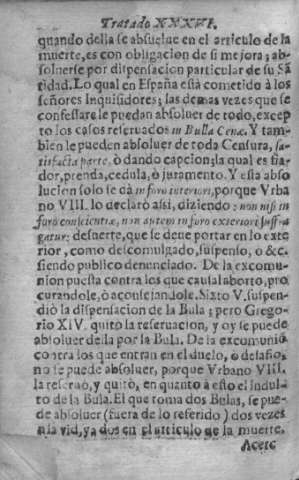 Tratado XXXVI.
quando della se absuelue en el articulo de la
muerte, es con obligacion de si mejora; ab-
soluerse por dispensacion particular de su Sã
tidad. Lo qual en España està cometido à los
señores Inquisidores; las demas vezes que se
confessare le puedan absoluer de todo, excep
to los casos reseruados in Bulla Cenæ. Y tam-
bien le pueden absoluer de toda Censura, sa-
tisfacta parte, ò dando capcion; la qual es fia-
dor, prenda, cedula, ò juramento. Y esta abso
lucion solo se dà in foro interiori, porque Vrba
no VIII. lo declarò assi, diziendo: non nisi in
foro conscientiæ, non autem in foro exteriori suff-a
gatur; desuerte, que se deue portar en lo exte
rior, como descomulgado, suspenso, ò &c.
siendo publico denunciado. De la excomu-
nion puesta contra los que causa aborto, pro
curandole, ò aconsejandole. Sixto V. suspen-
diò la dispensacion de la Bula; pero Grego-
rio XIV. quitò la reseruacion, y oy se puede
absoluer della por la Bula. De la excomuniõ
contra los que entran en el duelo, ò desafio,
no se puede absoluer, porque Vrbano VIII.
la reseruò, y quitò, en quanto à esto el Indul-
to de la Bula. El que toma dos Bulas, se pue-
de absoluer (fuera de lo referido) dos vezes
à la vid, ya dos en el articulo de la muerte.
Acerc